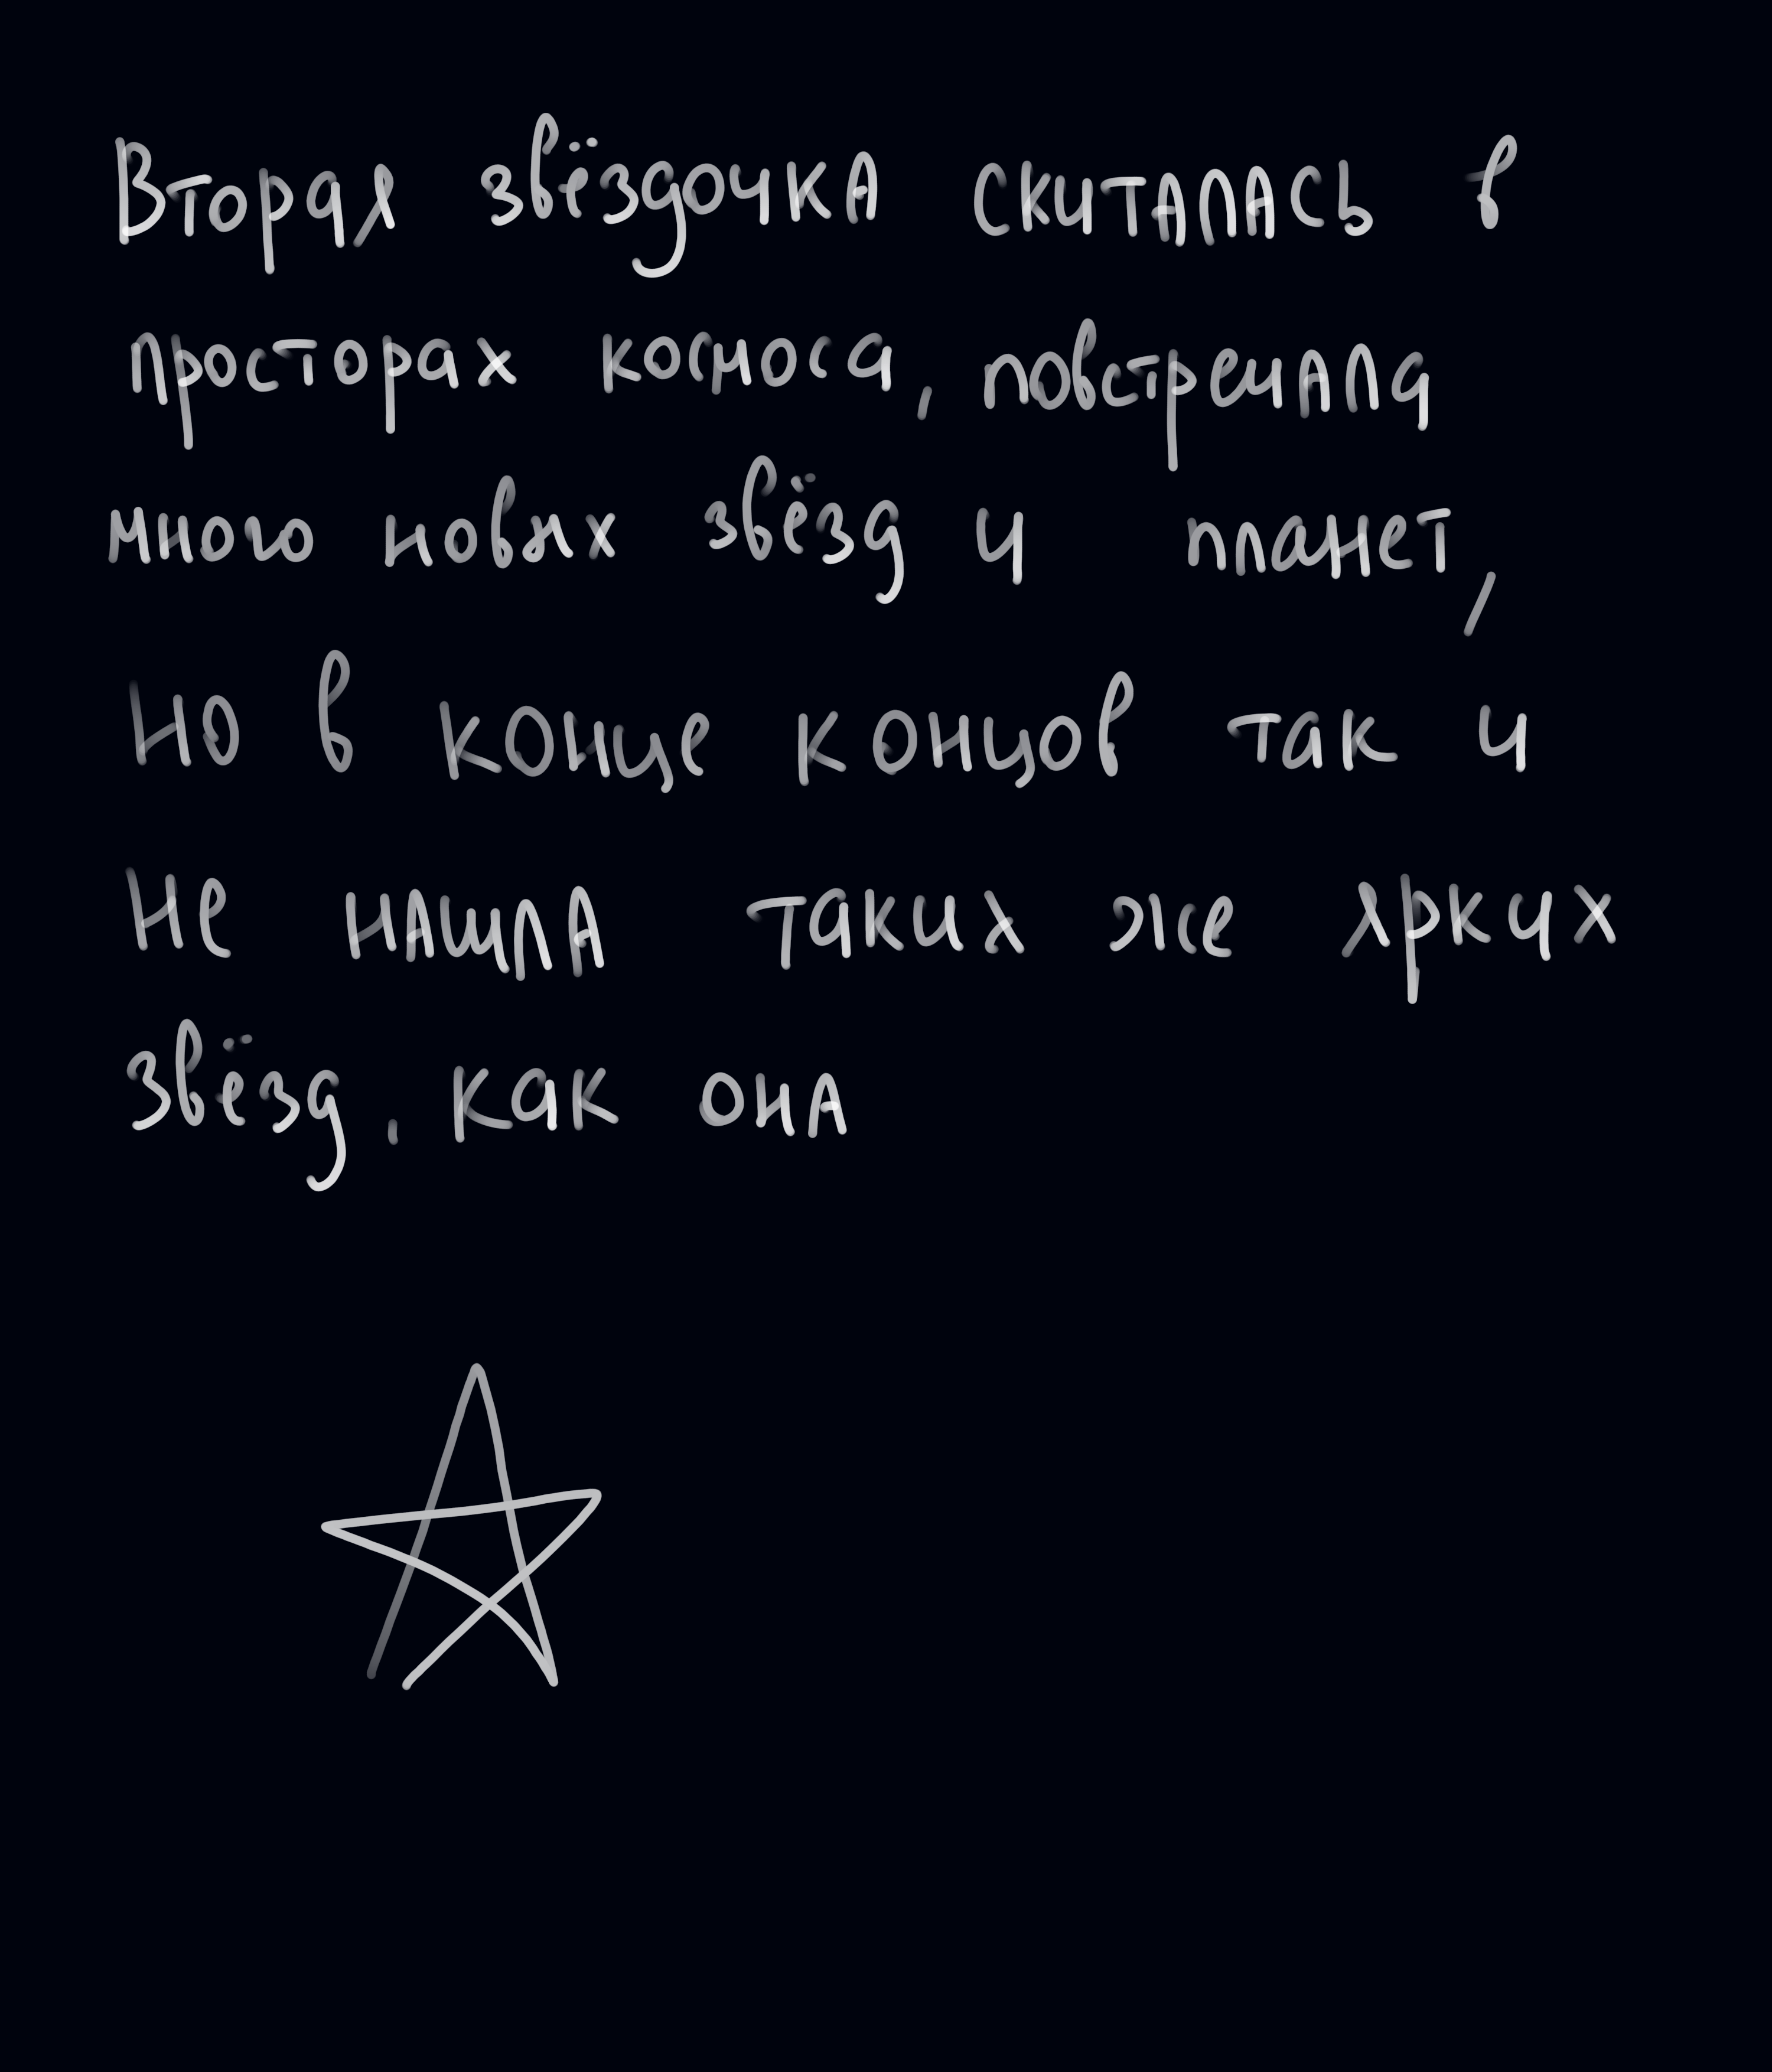 Вторая звёздочка скиталась в
просторах космоса, повстречала
много новых звёзд и планет,
но в конце концов так и
не нашла таких же ярких
звёзд, как она